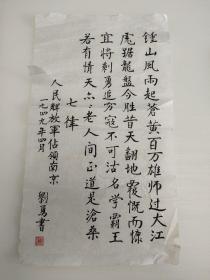 鍾山風雨起蒼黄百万雄师过大江
虎踞龍盤今胜昔天翻地覆慨而慷
宜将剩勇追穷寇不可沽名学霸王
若有情天亦老人间正道是滄桑
七律
人民解放軍佔領南京
一九四九年四月
劉書